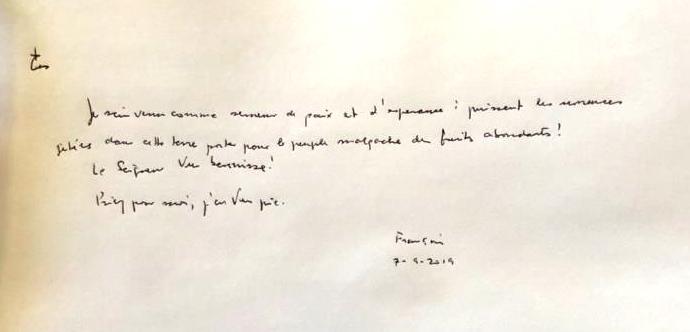 Je suis venu comme semeur de paix et d'espérance : puissent les semences
jetées dans cette terre porter pour le peuple malgache des fruits abondants !
Le Seigneur Vous bénnisse !
Priez pour moi, j'en Vous prie.
François
7-9-2019